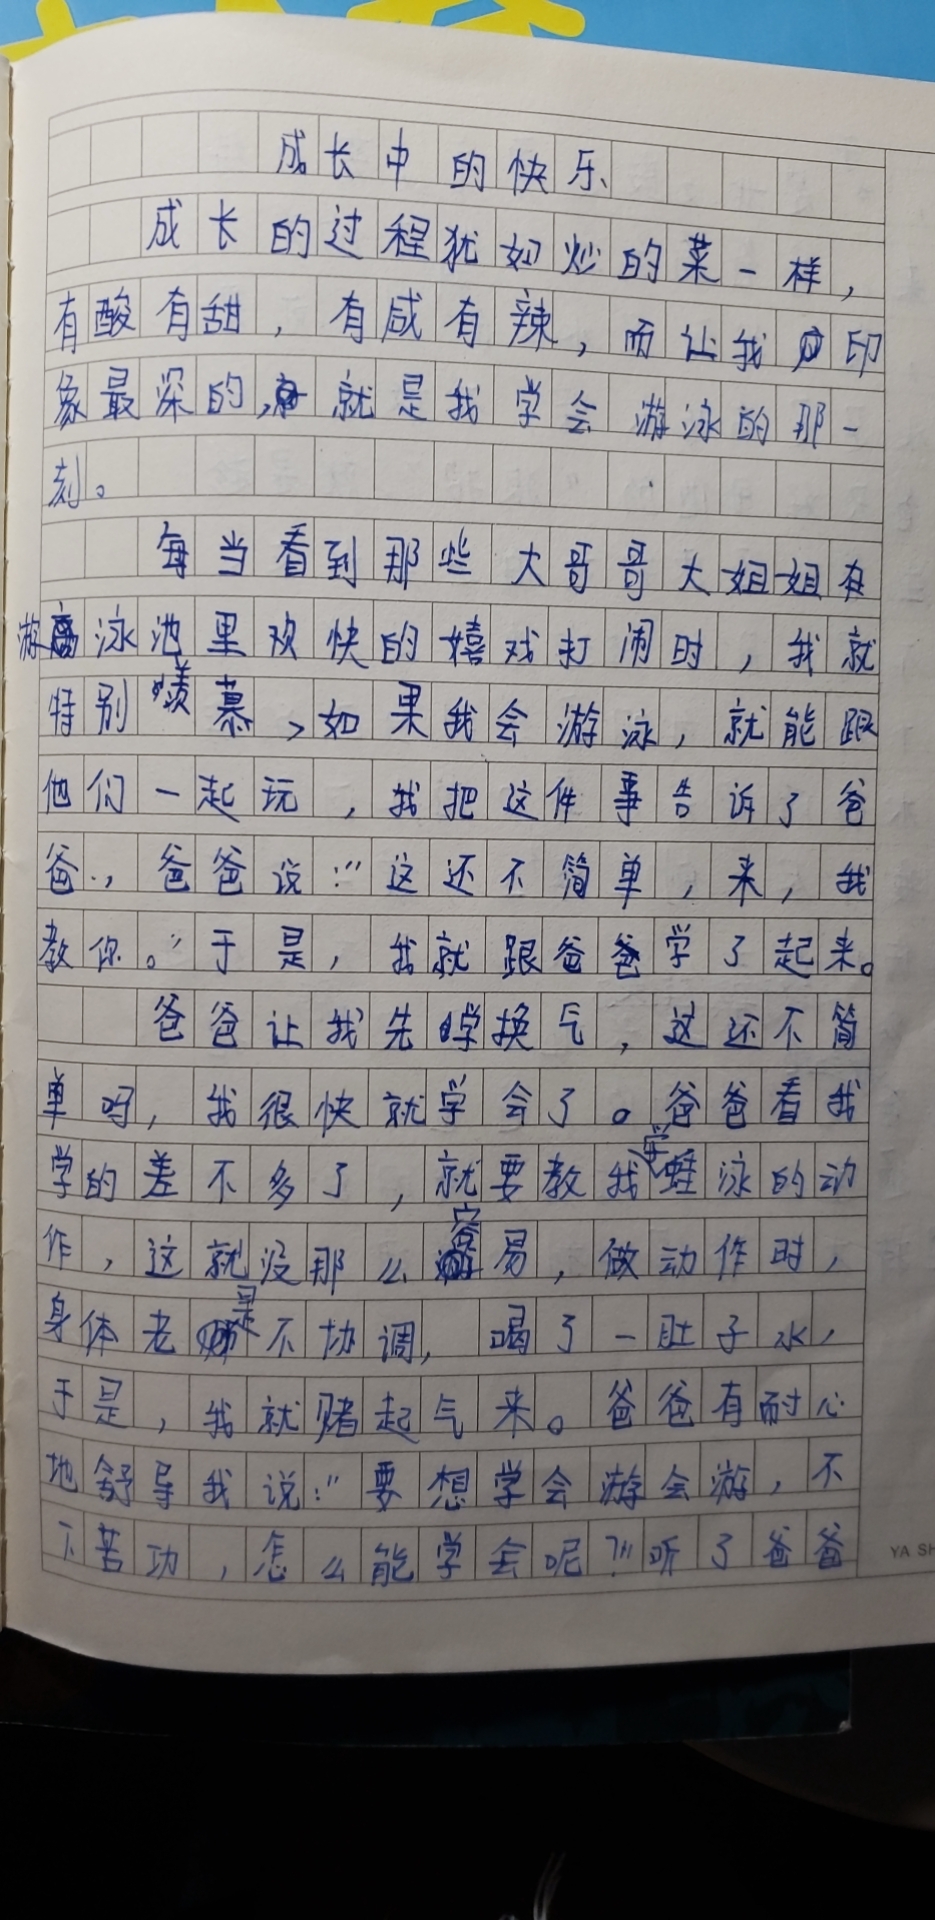 成长中的快乐
成长的过程犹如炒的菜一样，
有酸有甜，有咸有辣，而让我印
象最深的，就是我学会游泳的那一
刻。
每当看到那些大哥哥大姐姐在
游泳池里欢快的嬉戏打闹时，我就
特别羡慕，如果我会游泳，就能跟
他们一起玩，我把这件事告诉了爸
爸，爸爸说：“这还不简单，来，我
教你。”于是，我就跟爸爸学了起来。
爸爸让我先学换气，这还不简
单吗，我很快就学会了。爸爸看我
学的差不多了，就要教我学蛙泳的动
作，这就没那么容易，做动作时，
身体老是不协调，喝了一肚子水，
于是，我就赌起气来。爸爸有耐心
地舒导我说：“要想学会游会游，不
下苦功，怎么能学会呢？”听了爸爸
YA SH